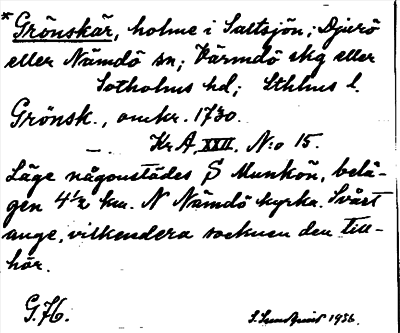 * Grönskär, holme i Saltsjön; Djurö
eller Nämdö sn; Värmdö skg eller
Sotholms hd; Sthlms l.
Grönsk., omkr. 1730.
—„— Kr. A, XXII, N:o 15.
Läge någonstädes S Munkön, belä-
gen 4½ km. N Nämdö kyrka. Svårt
ange, vilkendera socknen den till-
hör.
G.H. S. Lundqvist 1936.